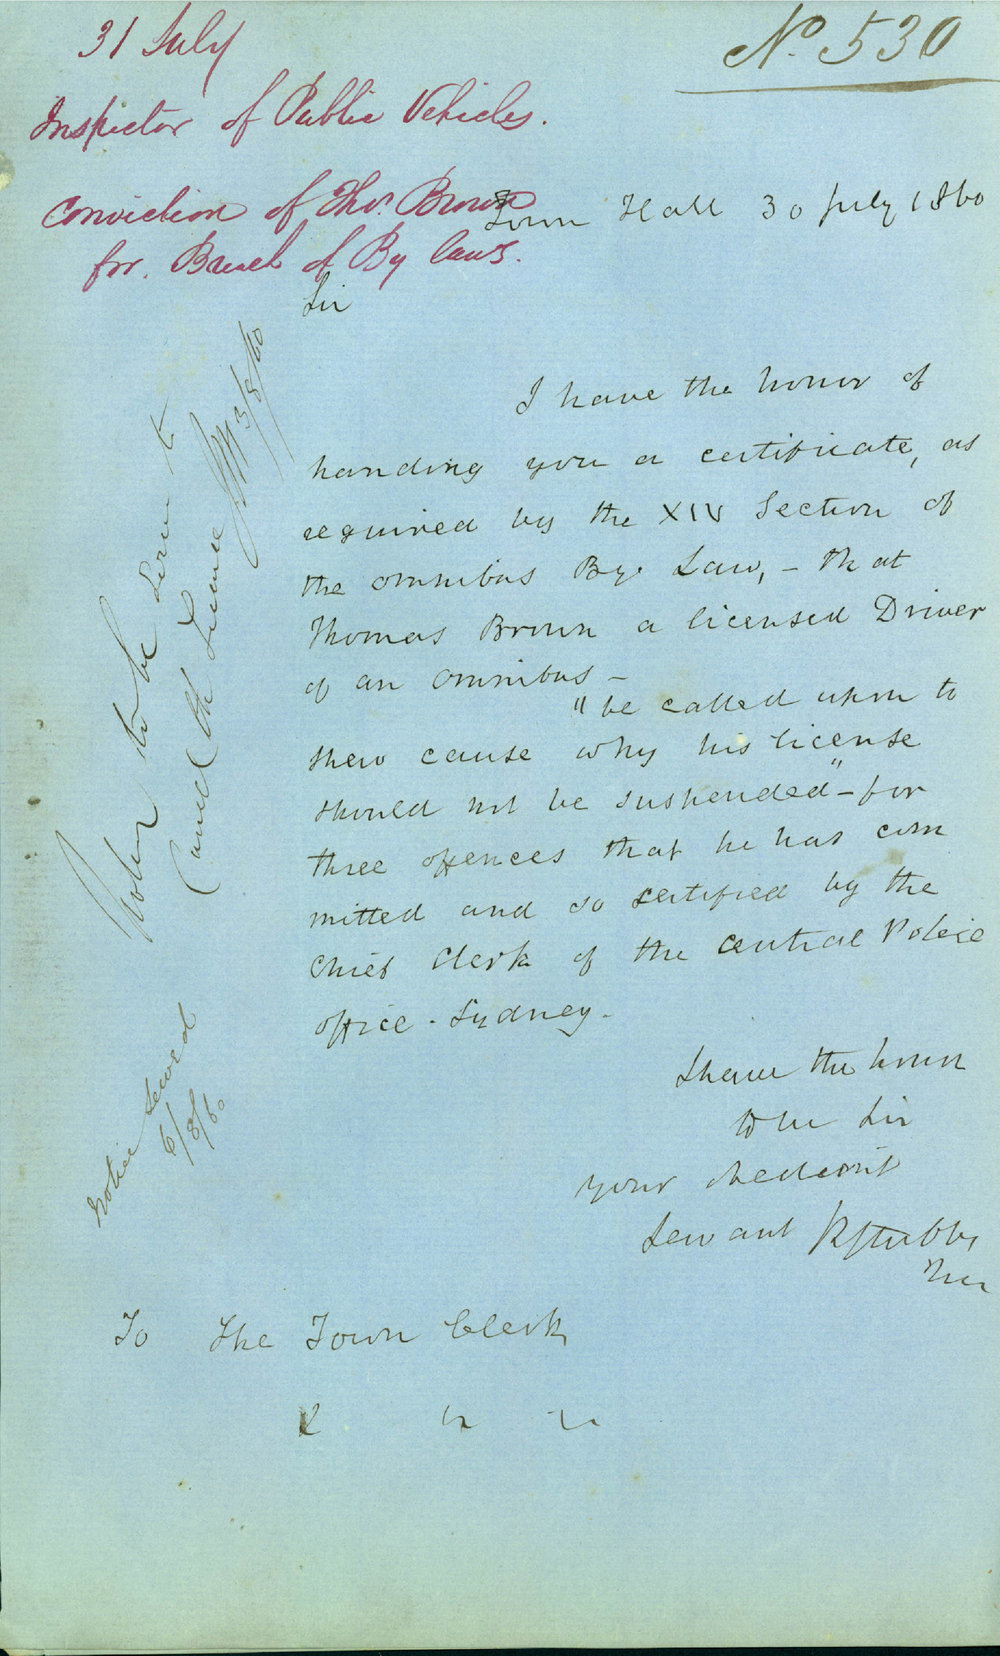 31 July
No. 530
Inspector of Public Vehicles.
Conviction of Thos. Brown
for. Breach of By laws.
Town Hall 30 July 1860
Sir
I have the honor of
handing you a certificate, as
required by the XIV Section of
the omnibus Bye Law, - that
Thomas Brown a licensed Driver
of an omnibus -
"be called upon to
shew cause why his license
should not be suspended" - for
three offences that he has com
mitted and so certified by the
Chief Clerk of the Central Police
office - Sydney.
I have the honor
to be Sir
your obedient
Servant R Stubbs
To The Town Clerk
Notice to be sent to
Cancel the License
3/8/60
Notice served
6/8/60